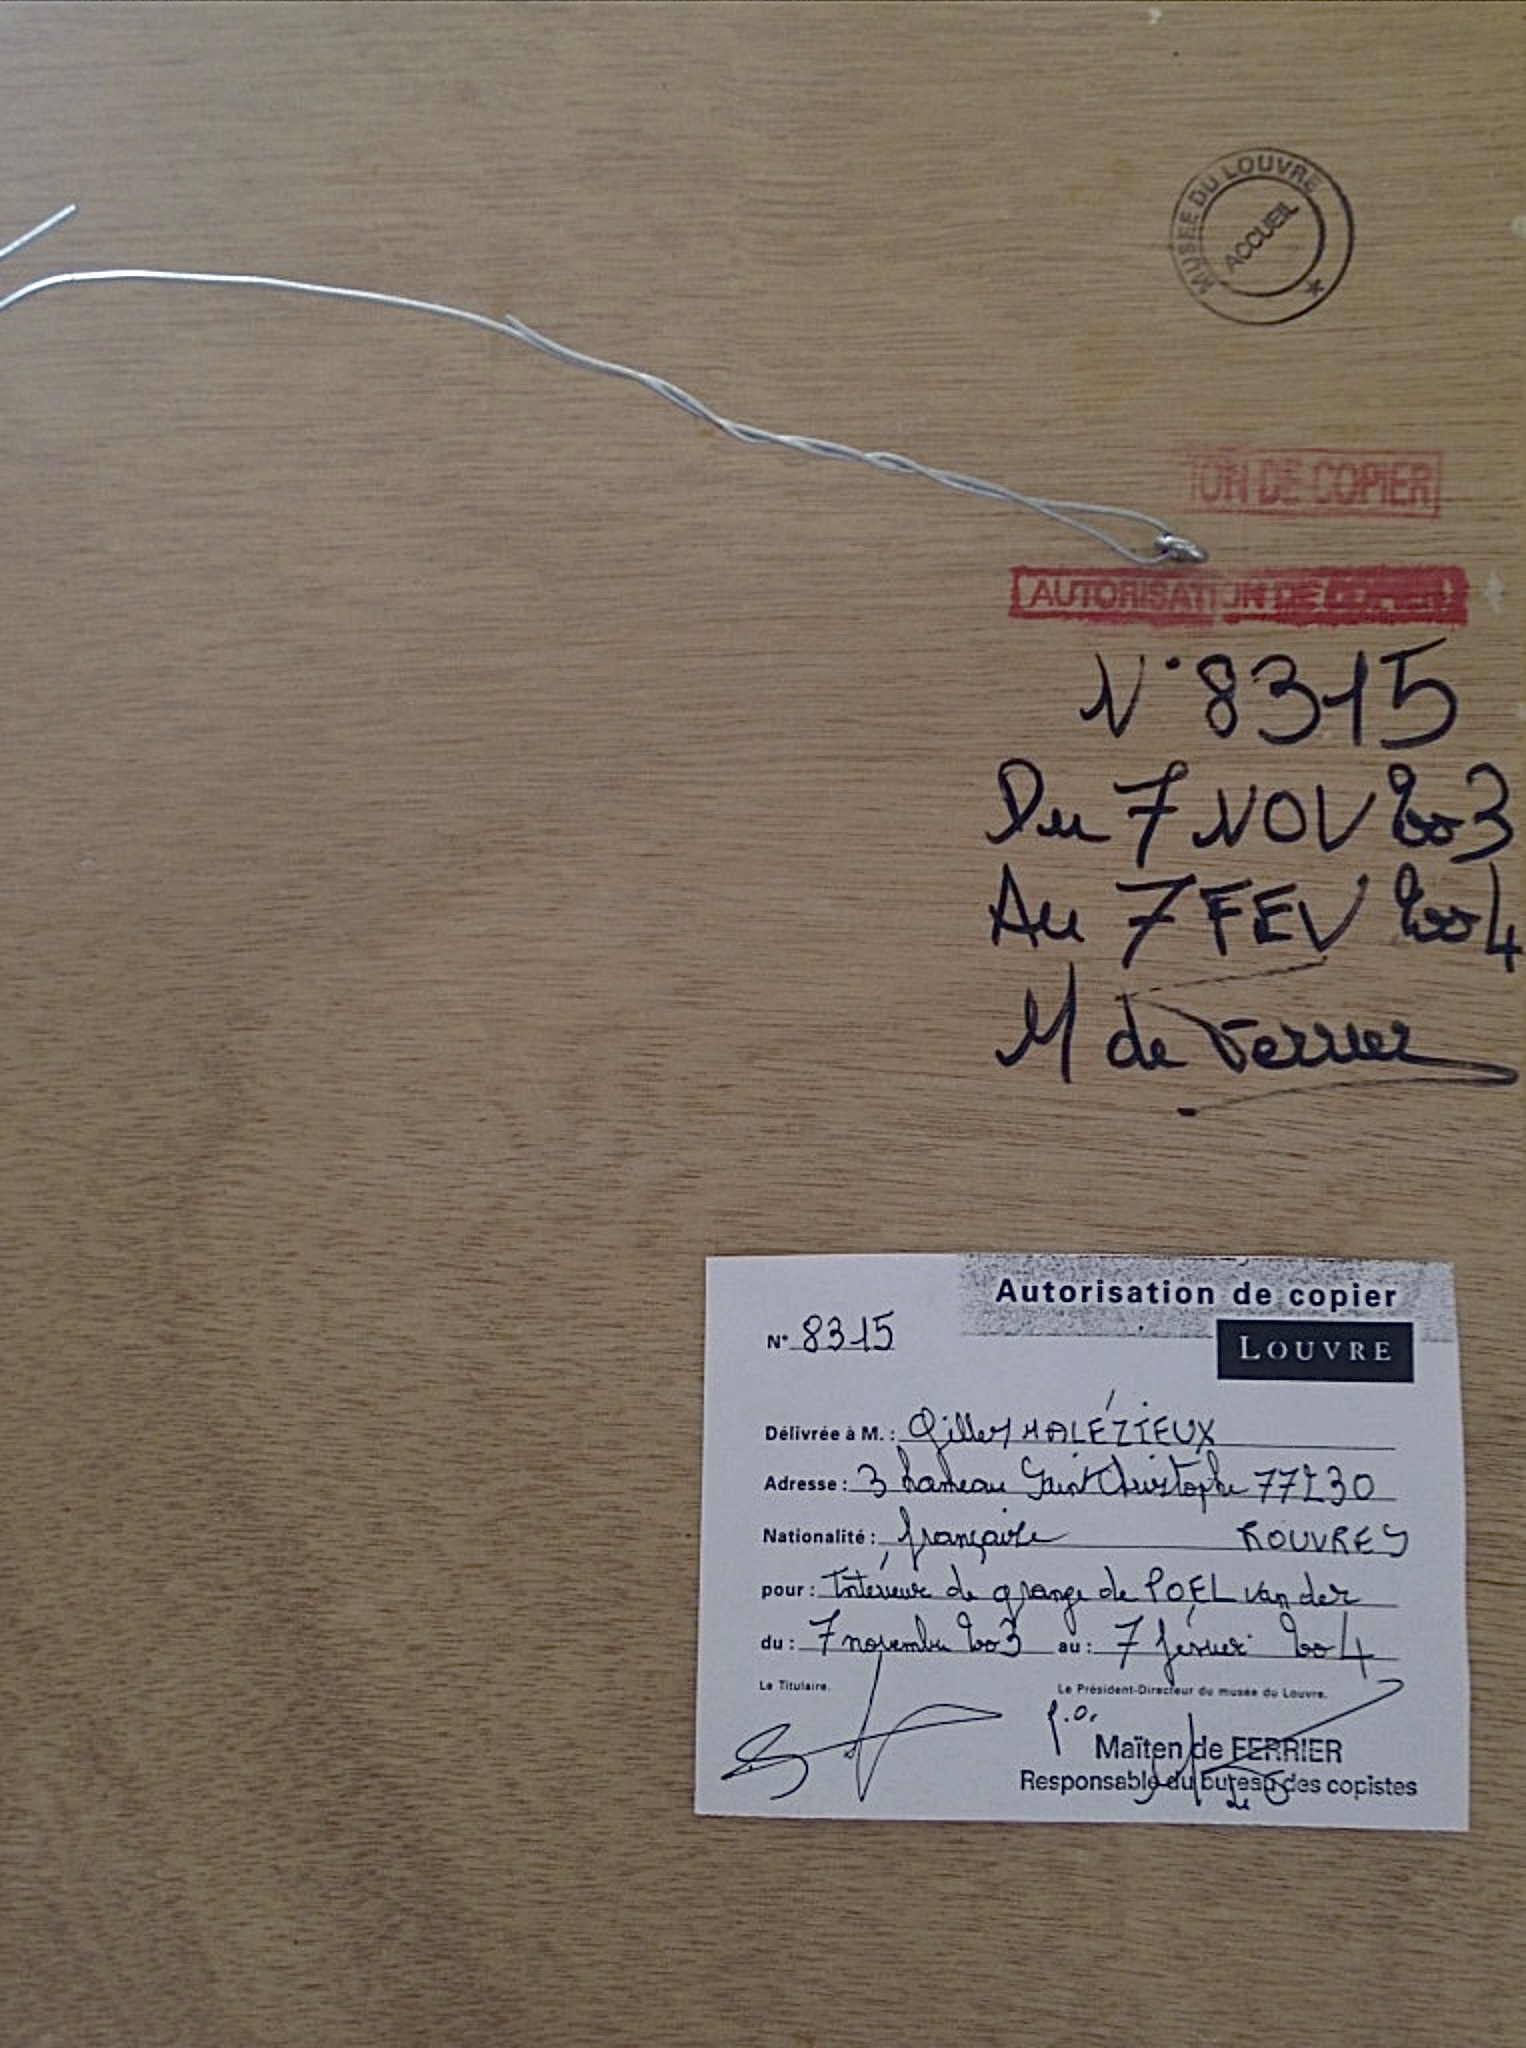 MUSEE DU LOUVRE
ACCUEIL
ION DE COPIER
AUTORISATION DE
N° 8315
Du 7 NOV 2003
Au 7 FEV 2004
M de Ferrier
Autorisation de copier
N° 8315
LOUVRE
Délivrée à M. : Gilles MALÉZIEUX
Adresse : 3 hameau Saint Christophe 77230
Nationalité : française ROUVRES
pour : Intérieur de grange de POEL van der
du : 7 novembre 2003 au : 7 février 2004
Le Titulaire. Le Président-Directeur du musée du Louvre.
p.o.
Maïten de FERRIER
Responsable du bureau des copistes